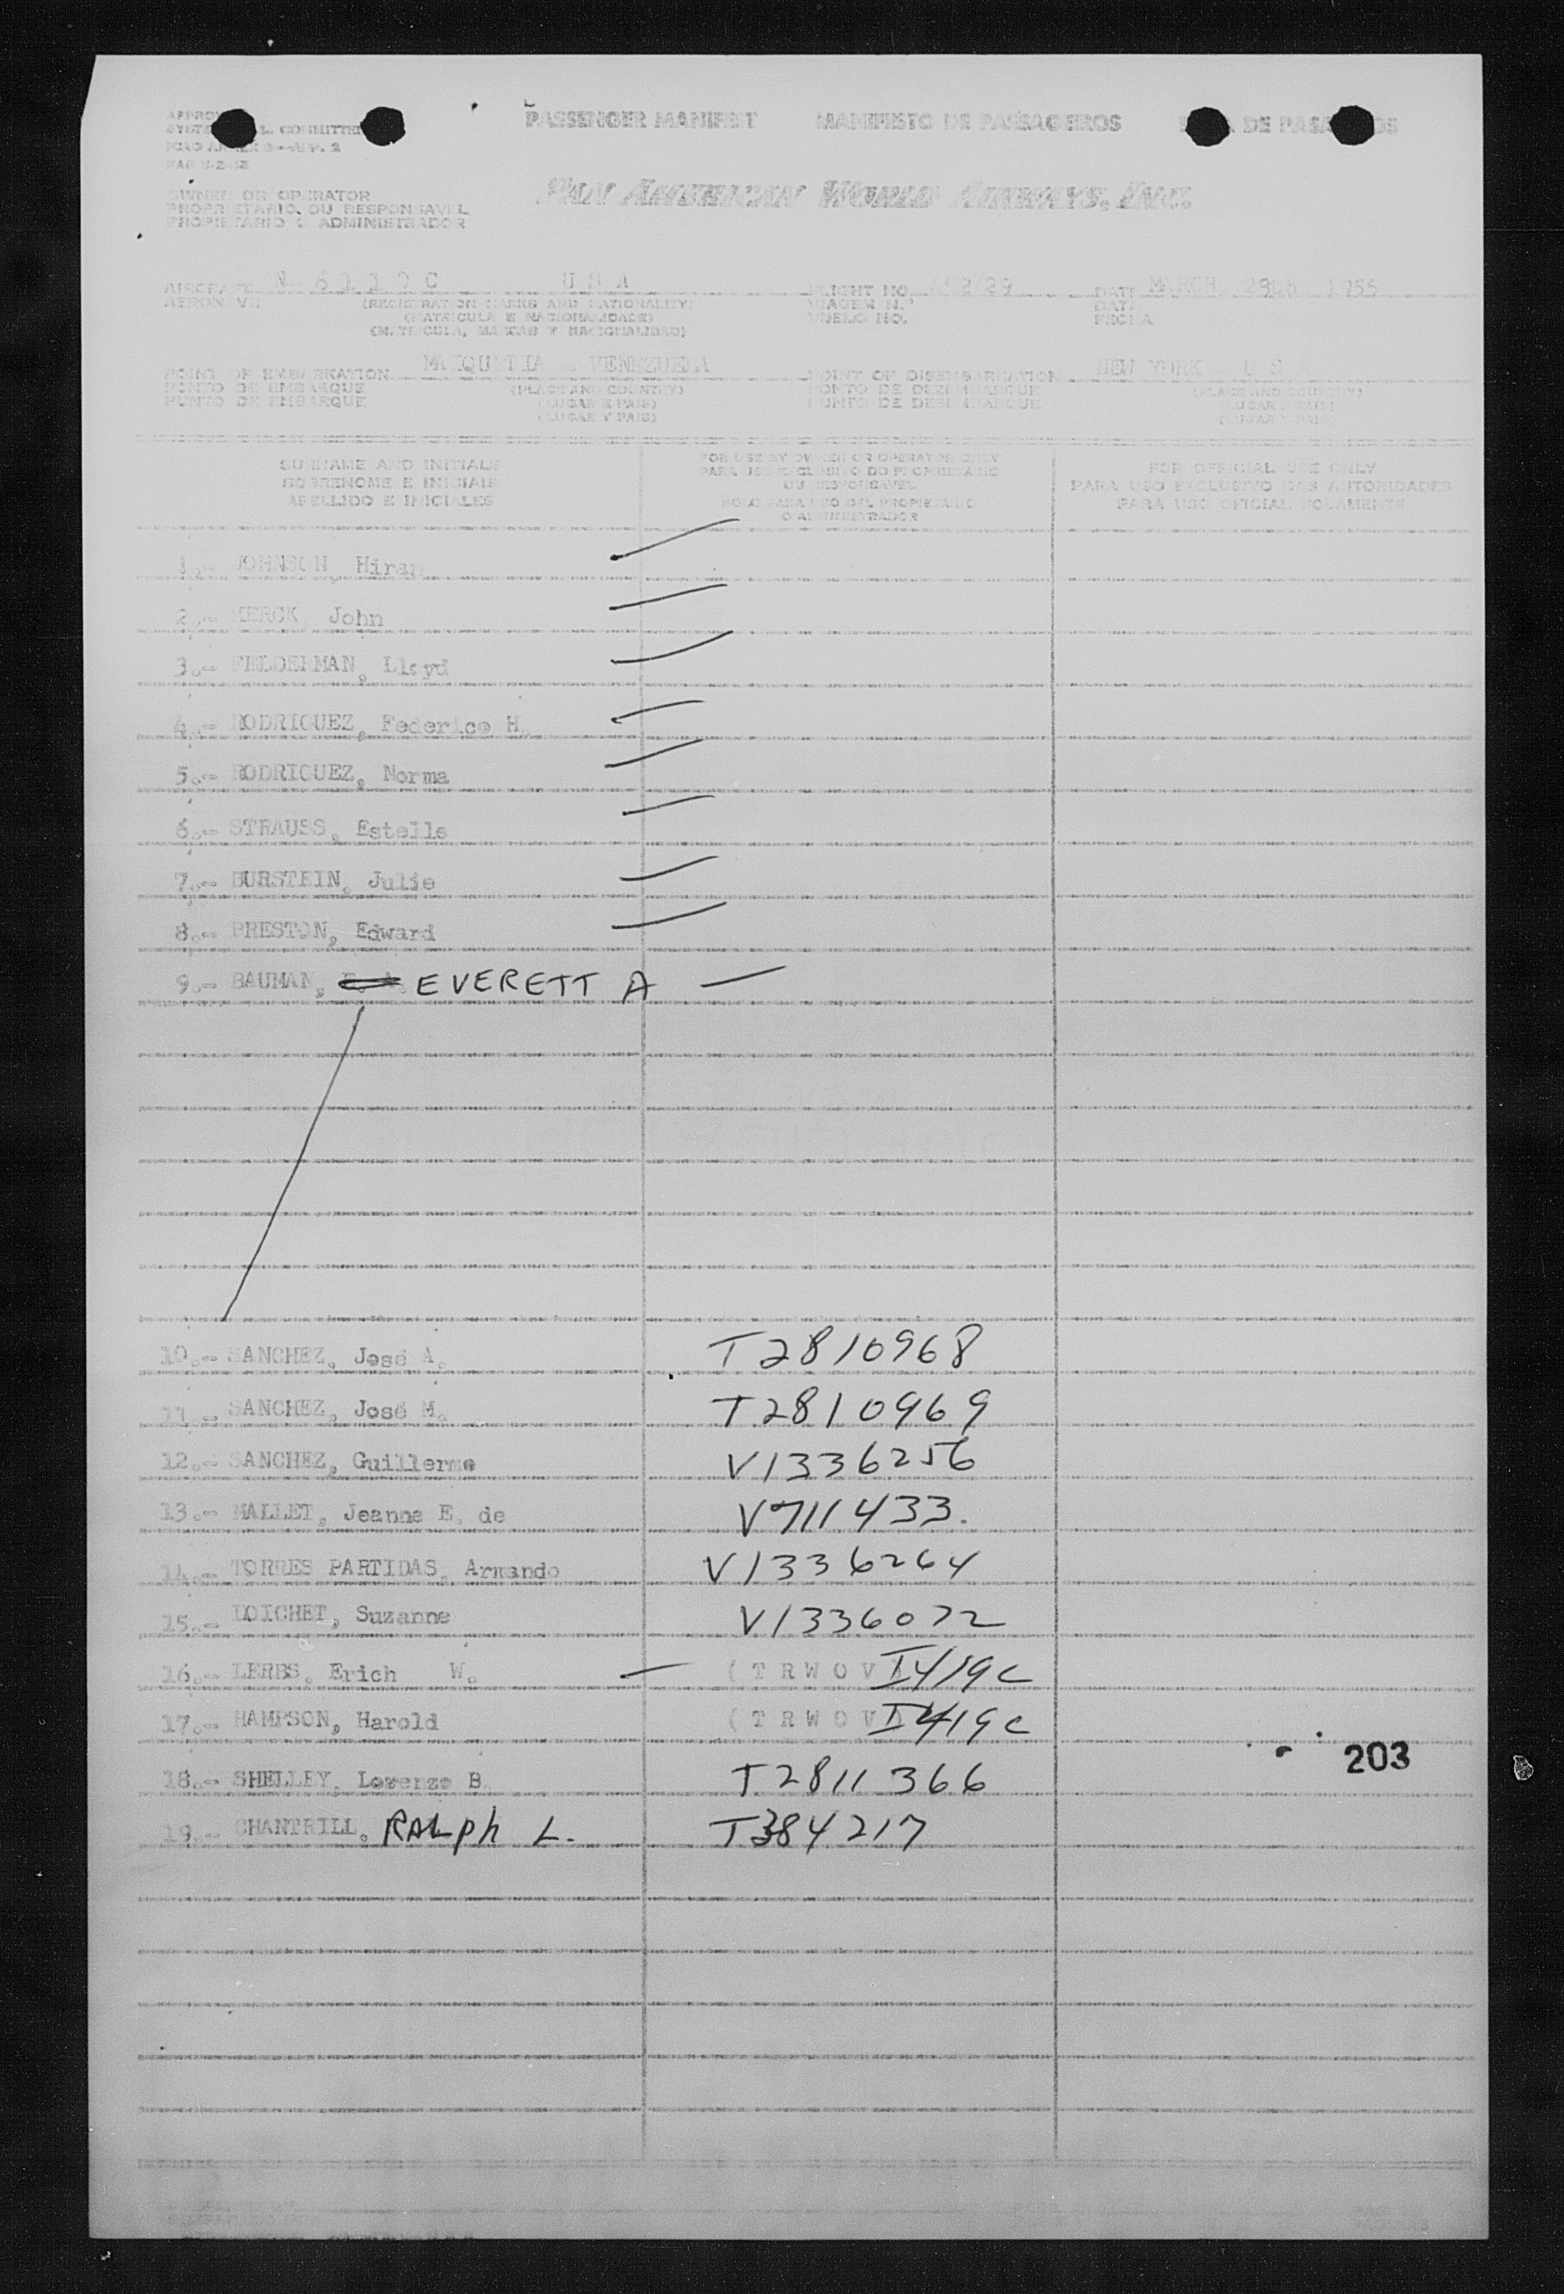 PASSENGER MANIFEST MANIFESTO DE PASSAGEIROS DE PASA
PAN AMERICAN WORLD AIRWAYS, INC.
OWNER OR OPERATOR
PROPRIETARIO OU RESPONSAVEL
PROPIETARIO O ADMINISTRADOR
U S A
FLIGHT NO. DATE MARCH 1955
(REGISTRATION MARKS AND NATIONALITY)
(MATRICULA E NACIONALIDADE)
VUELO NO. FECHA
(MATRICULA, MARCAS Y NACIONALIDAD)
MAIQUETIA - VENEZUELA NEW YORK U S
POINT OF EMBARKATION POINT OF DISEMBARKATION
PONTO DE EMBARQUE (PLACE AND COUNTRY) PONTO DE DESEMBARQUE (PLACE AND COUNTRY)
PUNTO DE EMBARQUE (LUGAR E PAIS) PUNTO DE DESEMBARQUE
(LUGAR Y PAIS)
SURNAME AND INITIALS
SOBRENOME E INICIAIS
APELLIDO E INICIALES
FOR USE BY OWNER OR OPERATOR ONLY
PARA USO EXCLUSIVO DO PROPRIETARIO
OU RESPONSAVEL
SOLO PARA USO DEL PROPIETARIO
O ADMINISTRADOR
FOR OFFICIAL USE ONLY
PARA USO EXCLUSIVO DAS AUTORIDADES
PARA USO OFICIAL SOLAMENTE
1.- JOHNSON, Hiram
2.- MERCK, John
3.- FELDERMAN, Lloyd
4.- RODRIGUEZ, Federico H.
5.- RODRIGUEZ, Norma
6.- STRAUSS, Estelle
7.- BURSTEIN, Julie
8.- PRESTON, Edward
9.- BAUMAN, EVERETT A
10.- SANCHEZ, José A. T2810968
11.- SANCHEZ, José M. T2810969
12.- SANCHEZ, Guillermo V1336256
13.- MALLET, Jeanne E. de V711433.
14.- TORRES PARTIDAS, Armando V1336264
15.- LOICHET, Suzanne V1336072
16.- LERBS, Erich W. (T R W O V) I419c
17.- HAMPSON, Harold (T R W O V) I419c
203
18.- SHELLEY, Lorenzo B. T2811366
19.- CHANTRILL, RALph L. T384217